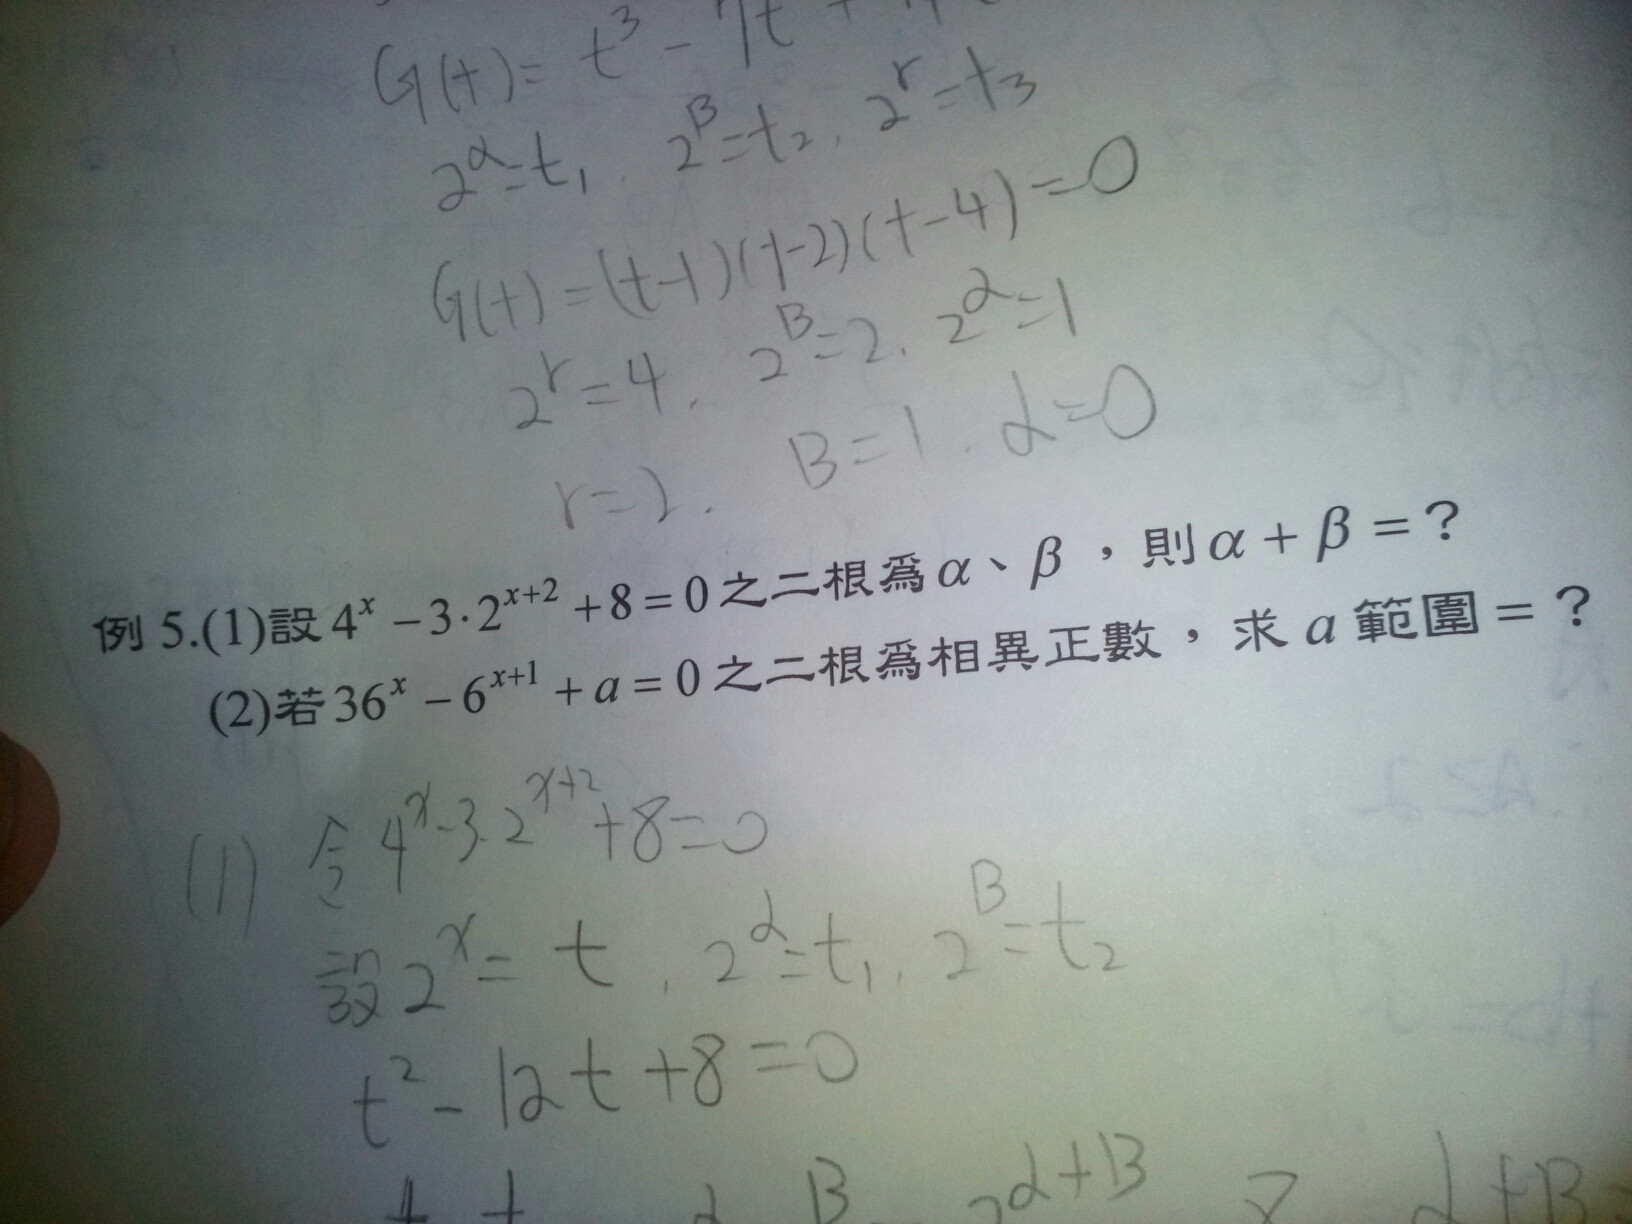 G(t) = t³ - 7t
2^α = t₁, 2^β = t₂, 2^r = t₃
G(t) = (t-1)(t-2)(t-4) = 0
2^r = 4, 2^β = 2, 2^α = 1
r = 2, β = 1, α = 0
例 5.(1)設 4^x − 3·2^{x+2} + 8 = 0 之二根為 α、β，則 α + β = ?
(2)若 36^x − 6^{x+1} + a = 0 之二根為相異正數，求 a 範圍 = ?
(1) 令 4^x - 3·2^{x+2} + 8 = 0
設 2^x = t, 2^α = t₁, 2^β = t₂
t² - 12t + 8 = 0
2^{α+β} 8 α+β =